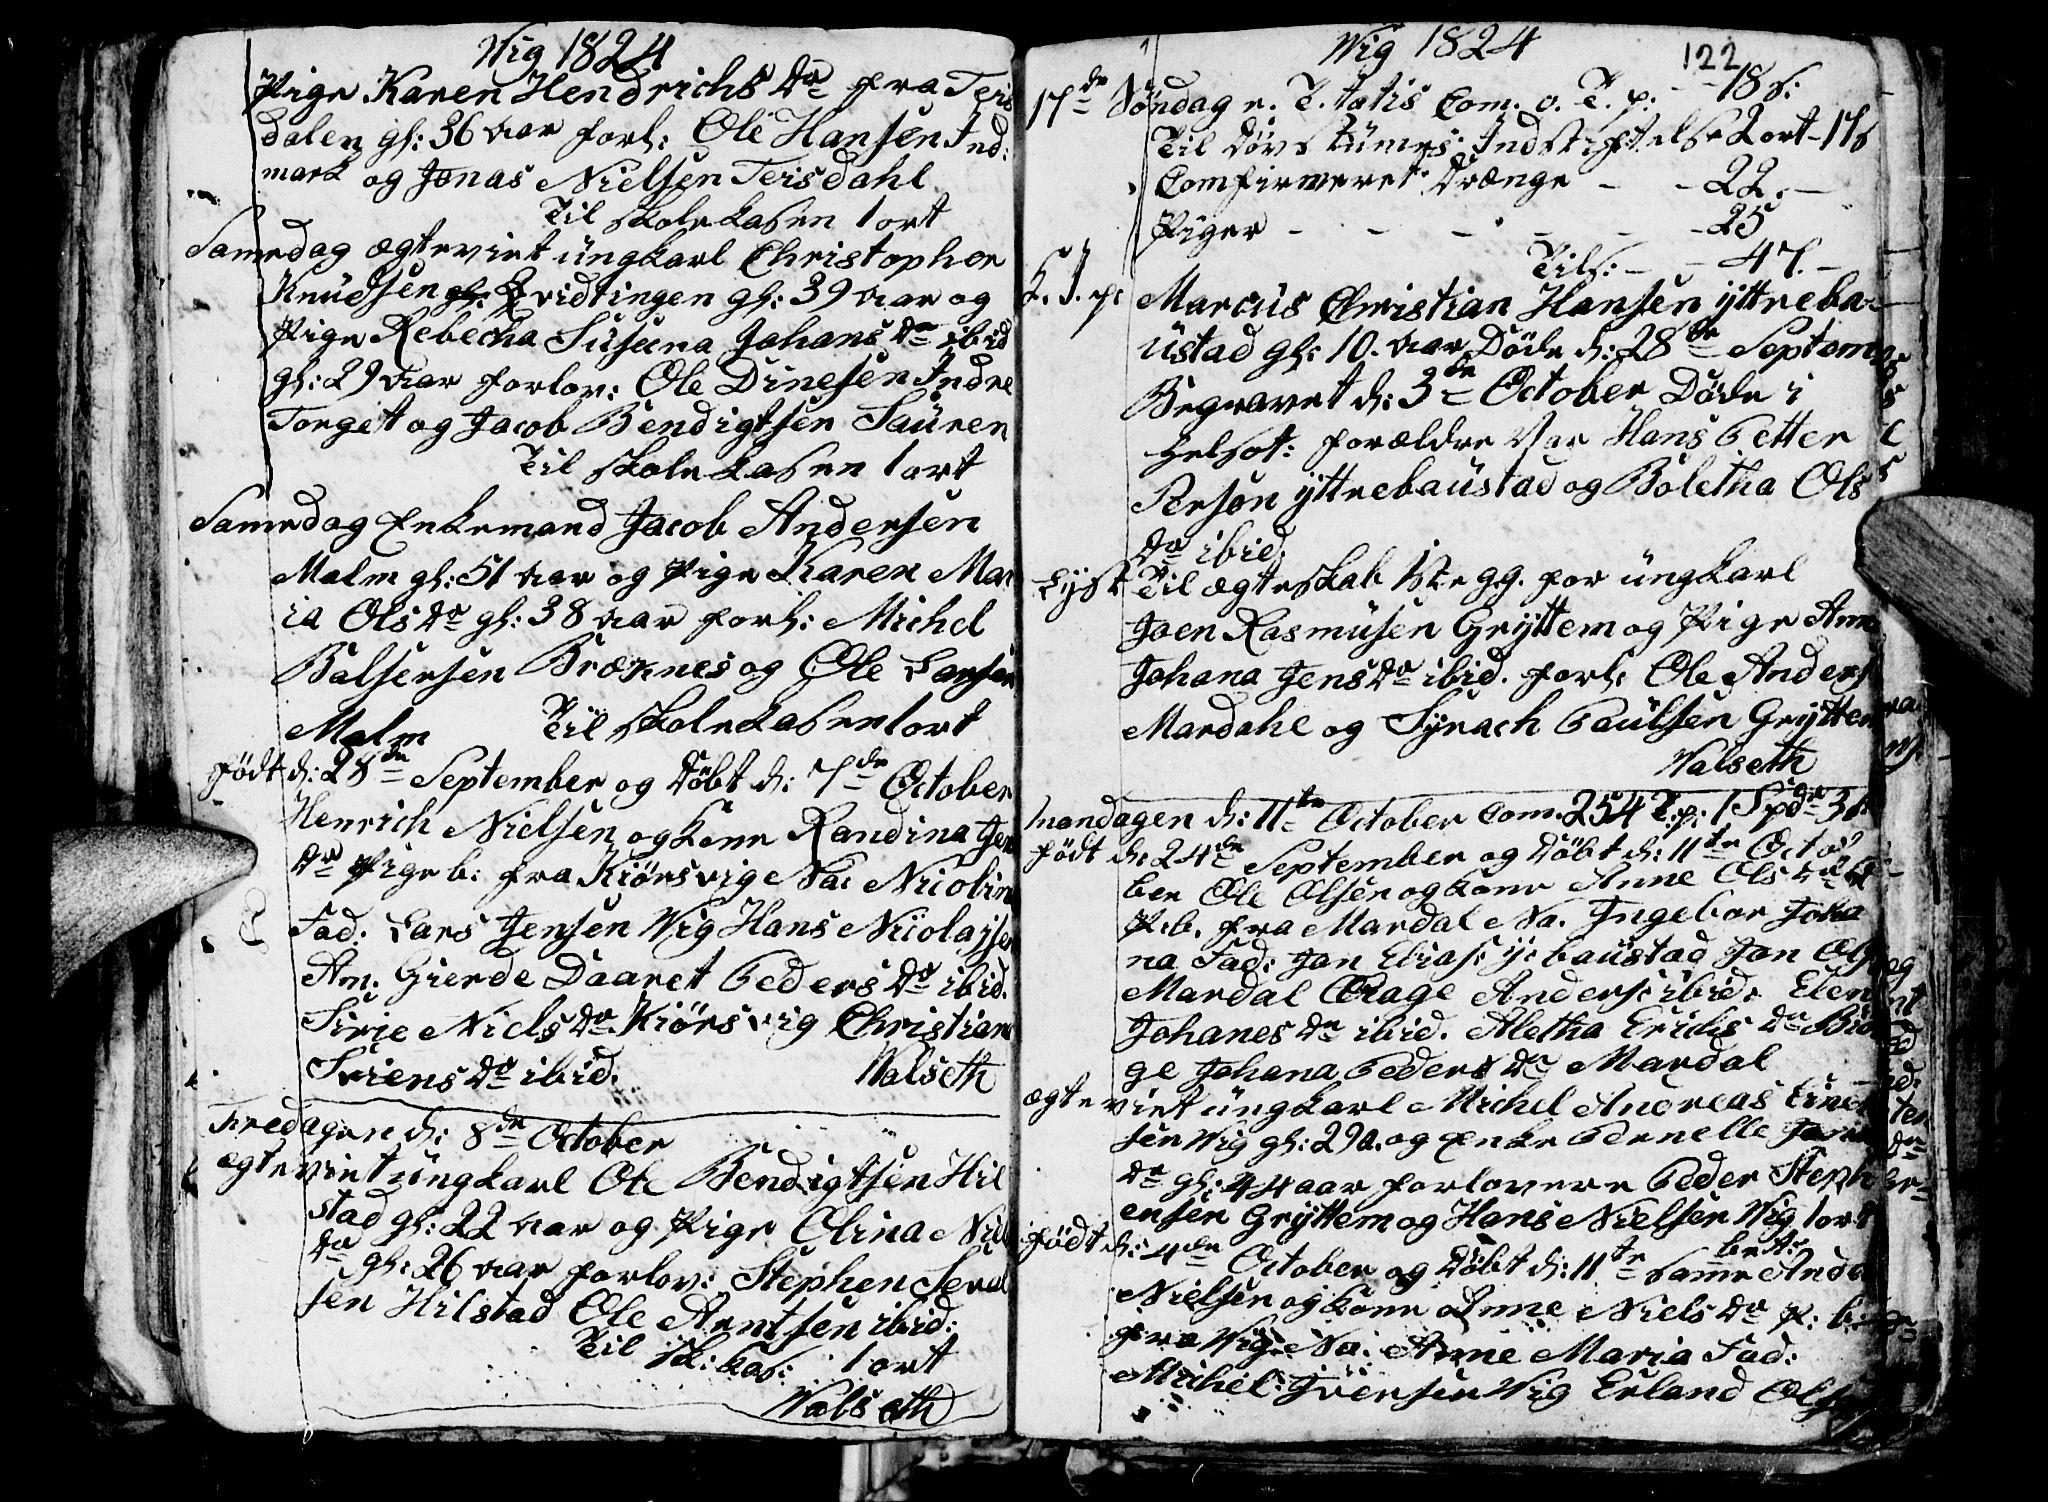 Wig 1824
Pige Karen Hendrichs Dr fra Teis
dalen gl: 36 aar forl: Ole Hansen Ind:
mark og Jonas Nielsen Teisdahl
Til skole kasen 1 ort
Samedag ægteviet ungkarl Christopher
Knudsen Qvidtingen gl: 39 aar og
Pige Rebecha Susena Johans Dr ibid
gl: 29 aar forlov: Ole Dinesen Indre
Torget og Jacob Bendigtsen Sauren
Til skole kasen 1 ort
Samedag Enkemand Jacob Andersen
Malm gl: 51 aar og Pige Karen Mar
ia Ols Dr gl: 38 aar forl: Michel
Balsersen Bræknes og Ole Larsen
Malm Til skole kasen 1 ort
født d: 28de September og Døbt d: 7de October
Henrich Nielsen og kone Randina Jen
Dr Pige b: fra Kiørsvig Na: Nicolin
Fad: Lars Jensen Wig Hans Nicolajsen
Am. Gierde Daaret Peders Dr ibid.
Sirie Niels Dr Kiørsvig Christian
Friens Dr ibid. Walseth
Fredagen d: 8de October
ægteviet ungkarl Ole Bendigtsen Hil
stad gl: 22 aar og Pige Olina Nil
Dr gl: 26 aar forlov: Stephen Seval
sen Hilstad Ole Arntsen ibid:
Til sk: kas: 1 ort
Walseth
Wig 1824 122
17de Søndag e. T. tatis Com. o. T. p: - - 18 s:
Til Døvstumes Indstiftelse 2 ort - 17 s
Comfirmeret Drænge - - 22. -
Piger - - - - - - 25
Tils: - - 47. -
L. J. p: Marcus Christian Hansen yttreba-
ustad gl: 10. aar Døde d: 28de Septem
Begravet d: 3de October Døde i
helsot: forældre Var Hans Petter
Person yttrebaustad og Boletha Ols
Dr ibid.
Lyst Til ægteskab 1ste gg. for ungkarl
Joen Rasmusen Gryttem og Pige Ann
Johana Jens Dr ibid. forl: Ole Anders
Mardahl og Syrach Paulsen Grytten
Walseth
Mandagen d: 11te October Com. 254 T: p: 1 Spdr 31
født d: 24de September og Døbt d: 11te Octo
ber Ole Olsen og kone Anne Ols Dr
P. b. fra Mardal Na. Ingebor Joha
na Fad: Jan Elias: y: baustad Jon Ols
Mardal Aage Anders: ibid: Elen
Johanes Dr ibid. Aletha Erichs Dr Bio
ge Johana Peders Dr Mardal
ægteviet ungkarl Michel Andreas Einer
sen Wig gl: 29 a. og Enke Pernelle
Dr gl: 44 aar forlovere Peder Steph
ensen Gryttem og Hans Nielsen Wig 1 ort
født d: 4de October og Døbt d: 11te Same Ande
Nielsen og kone Anne Niels Dr P: b:
fra Wig Na: Anne Maria Fad:
Michel: Iversen Wig Erland Olsen